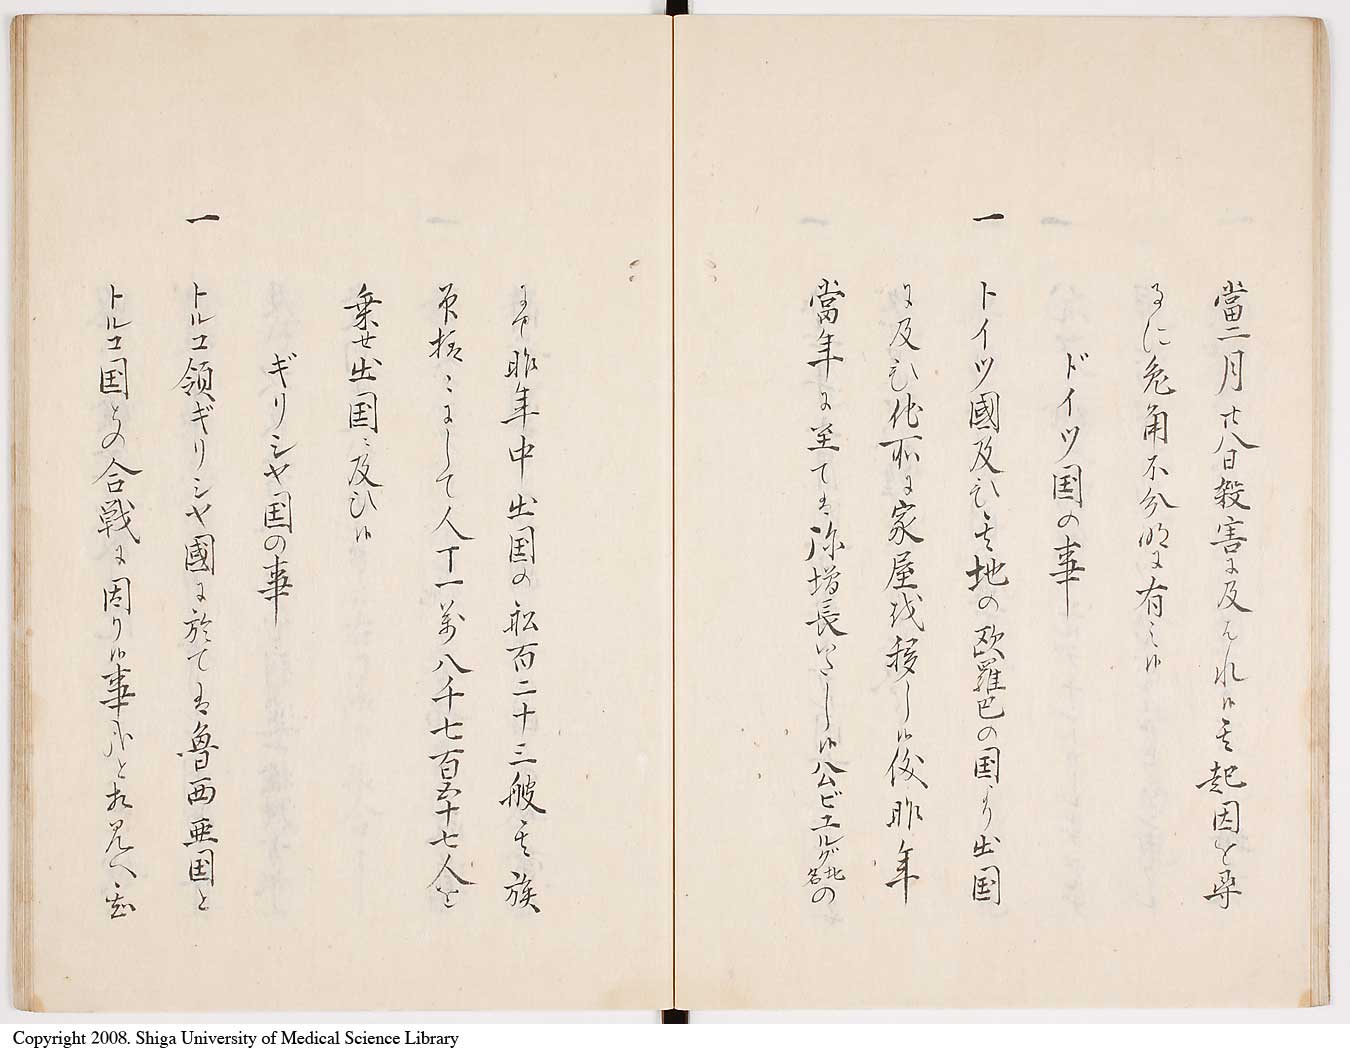 當二月廿八日殺害に及はれ候其起因を尋
るに兎角不分明に有之候
ドイツ国の事
一 トイツ國及ひ其地の欧羅巴の国より出国
に及ひ他所に家屋を移し候儀昨年
當年に至ては弥増長いたし候公ビエルグ地名の
昨年中出国の舩百二十三艘其族
にして人丁一万八千七百五十七人を
乗せ出国に及ひ候
ギリシヤ国の事
一 トルコ領ギリシヤ國に於ては魯西亜国と
トルコ国との合戦に因り候事水と相見へ
Copyright 2008. Shiga University of Medical Science Library